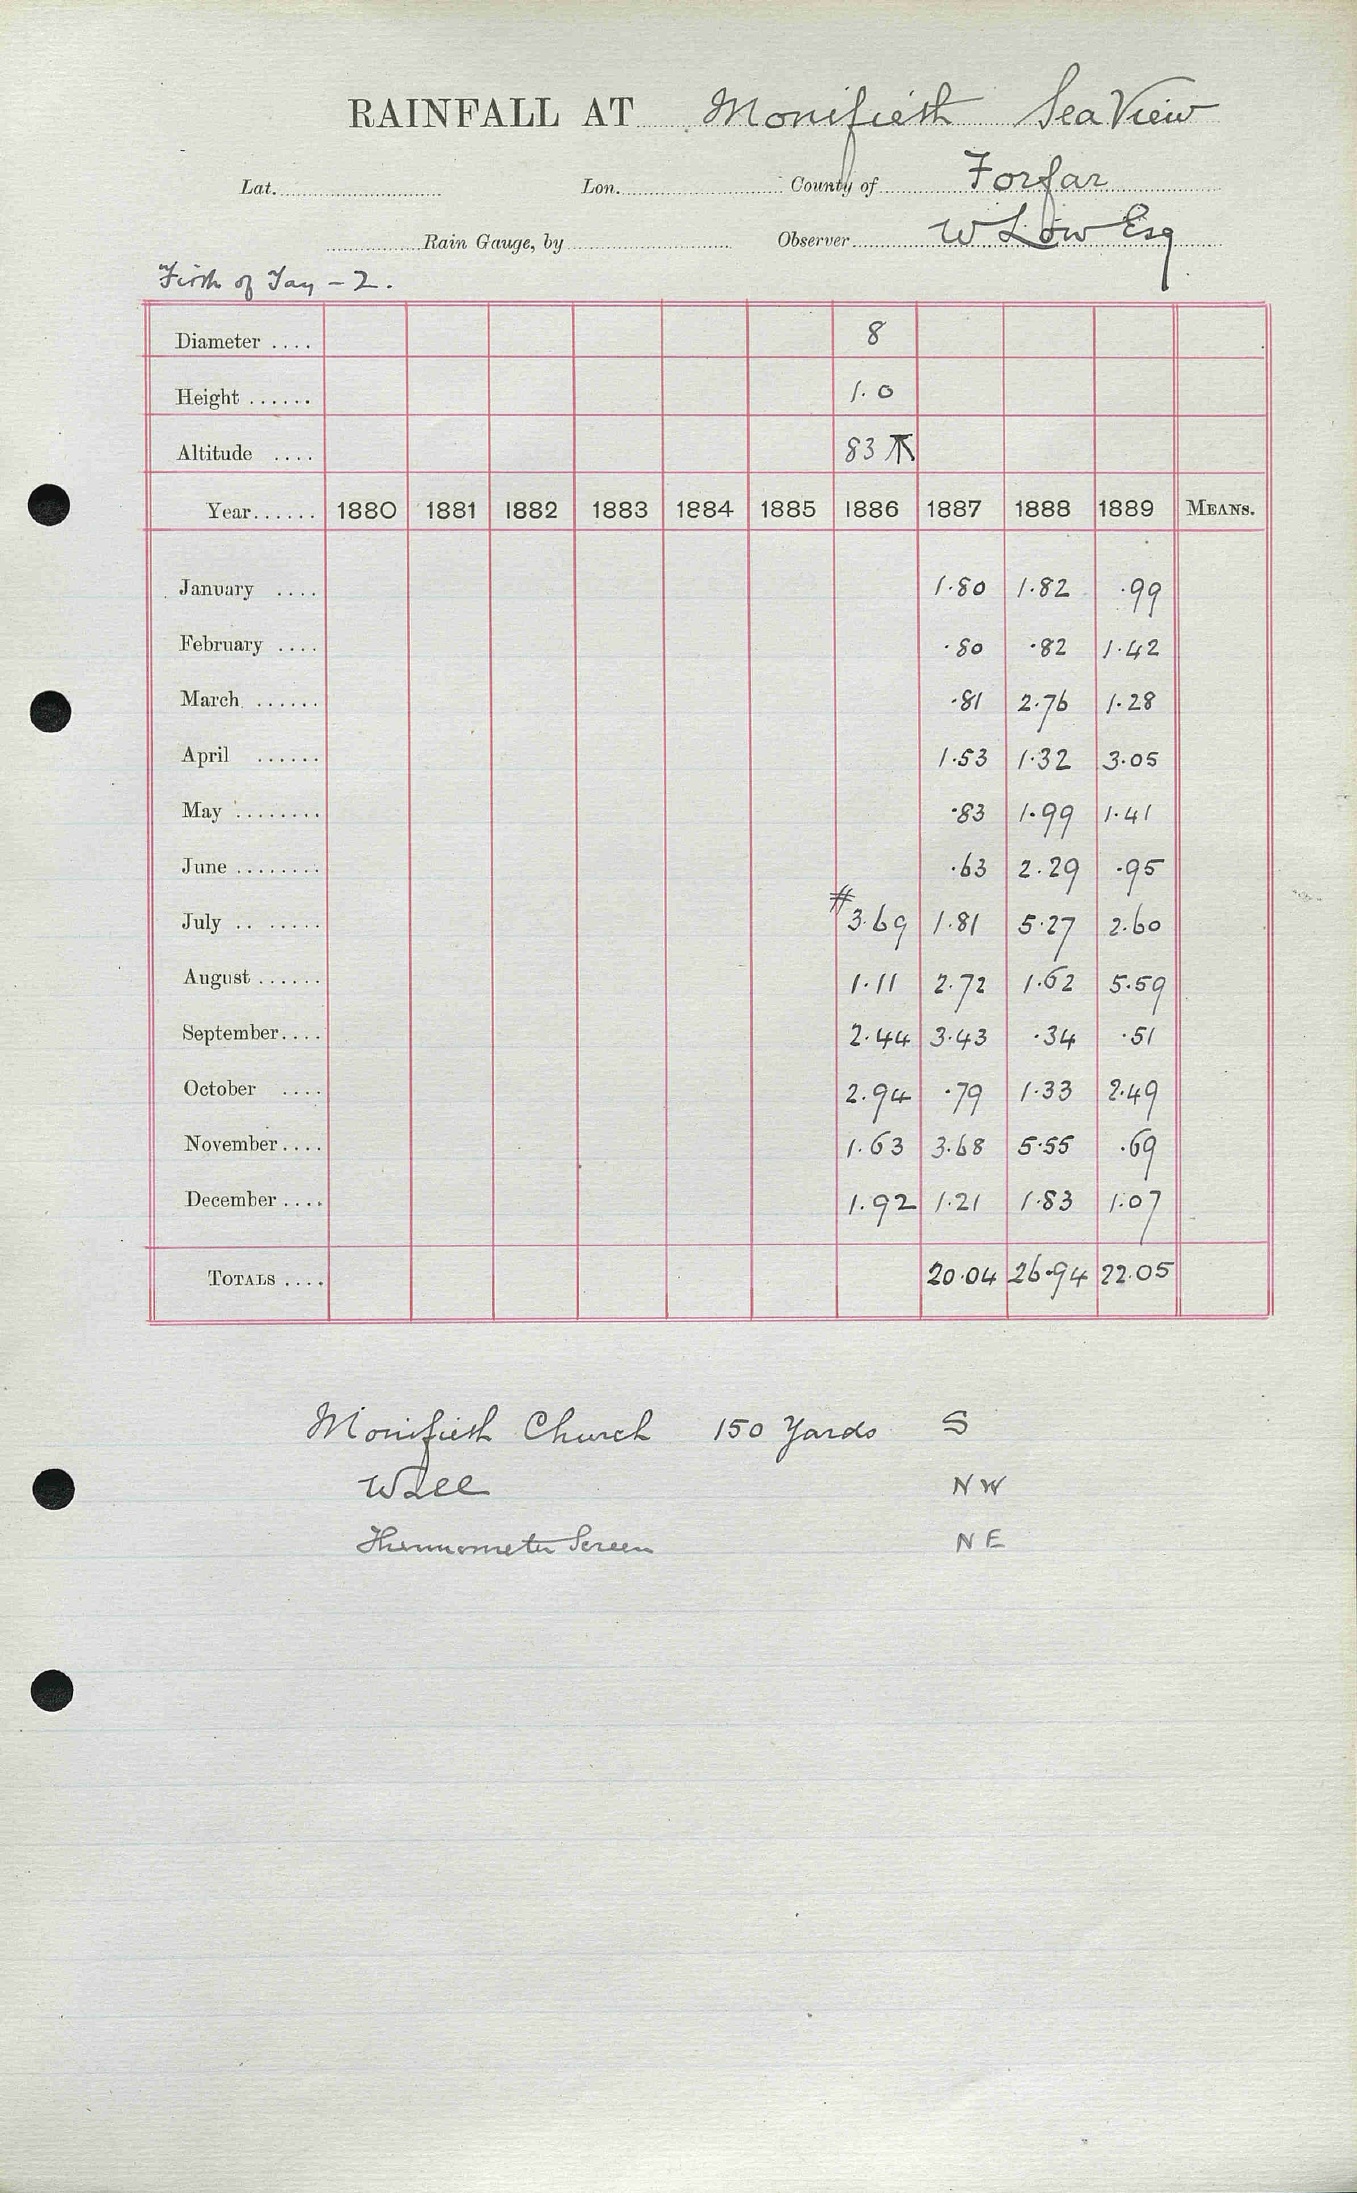 RAINFALL AT Monifieth Sea View
Lat. Lon. County of Forfar
Rain Gauge, by Observer W Low Esq
Firth of Tay - 2.
Diameter .... 8
Height ...... 1.0
Altitude .... 83
Year...... 1880 1881 1882 1883 1884 1885 1886 1887 1888 1889 MEANS.
January .... 1.80 1.82 .99
February .... .80 .82 1.42
March ...... .81 2.76 1.28
April ...... 1.53 1.32 3.05
May ........ .83 1.99 1.41
June ........ .63 2.29 .95
July ....... #3.69 1.81 5.27 2.60
August ...... 1.11 2.72 1.62 5.59
September.... 2.44 3.43 .34 .51
October .... 2.94 .79 1.33 2.49
November.... 1.63 3.68 5.55 .69
December .... 1.92 1.21 1.83 1.07
TOTALS .... 20.04 26.94 22.05
Monifieth Church 150 Yards S
Wall NW
Thermometer Screen NE